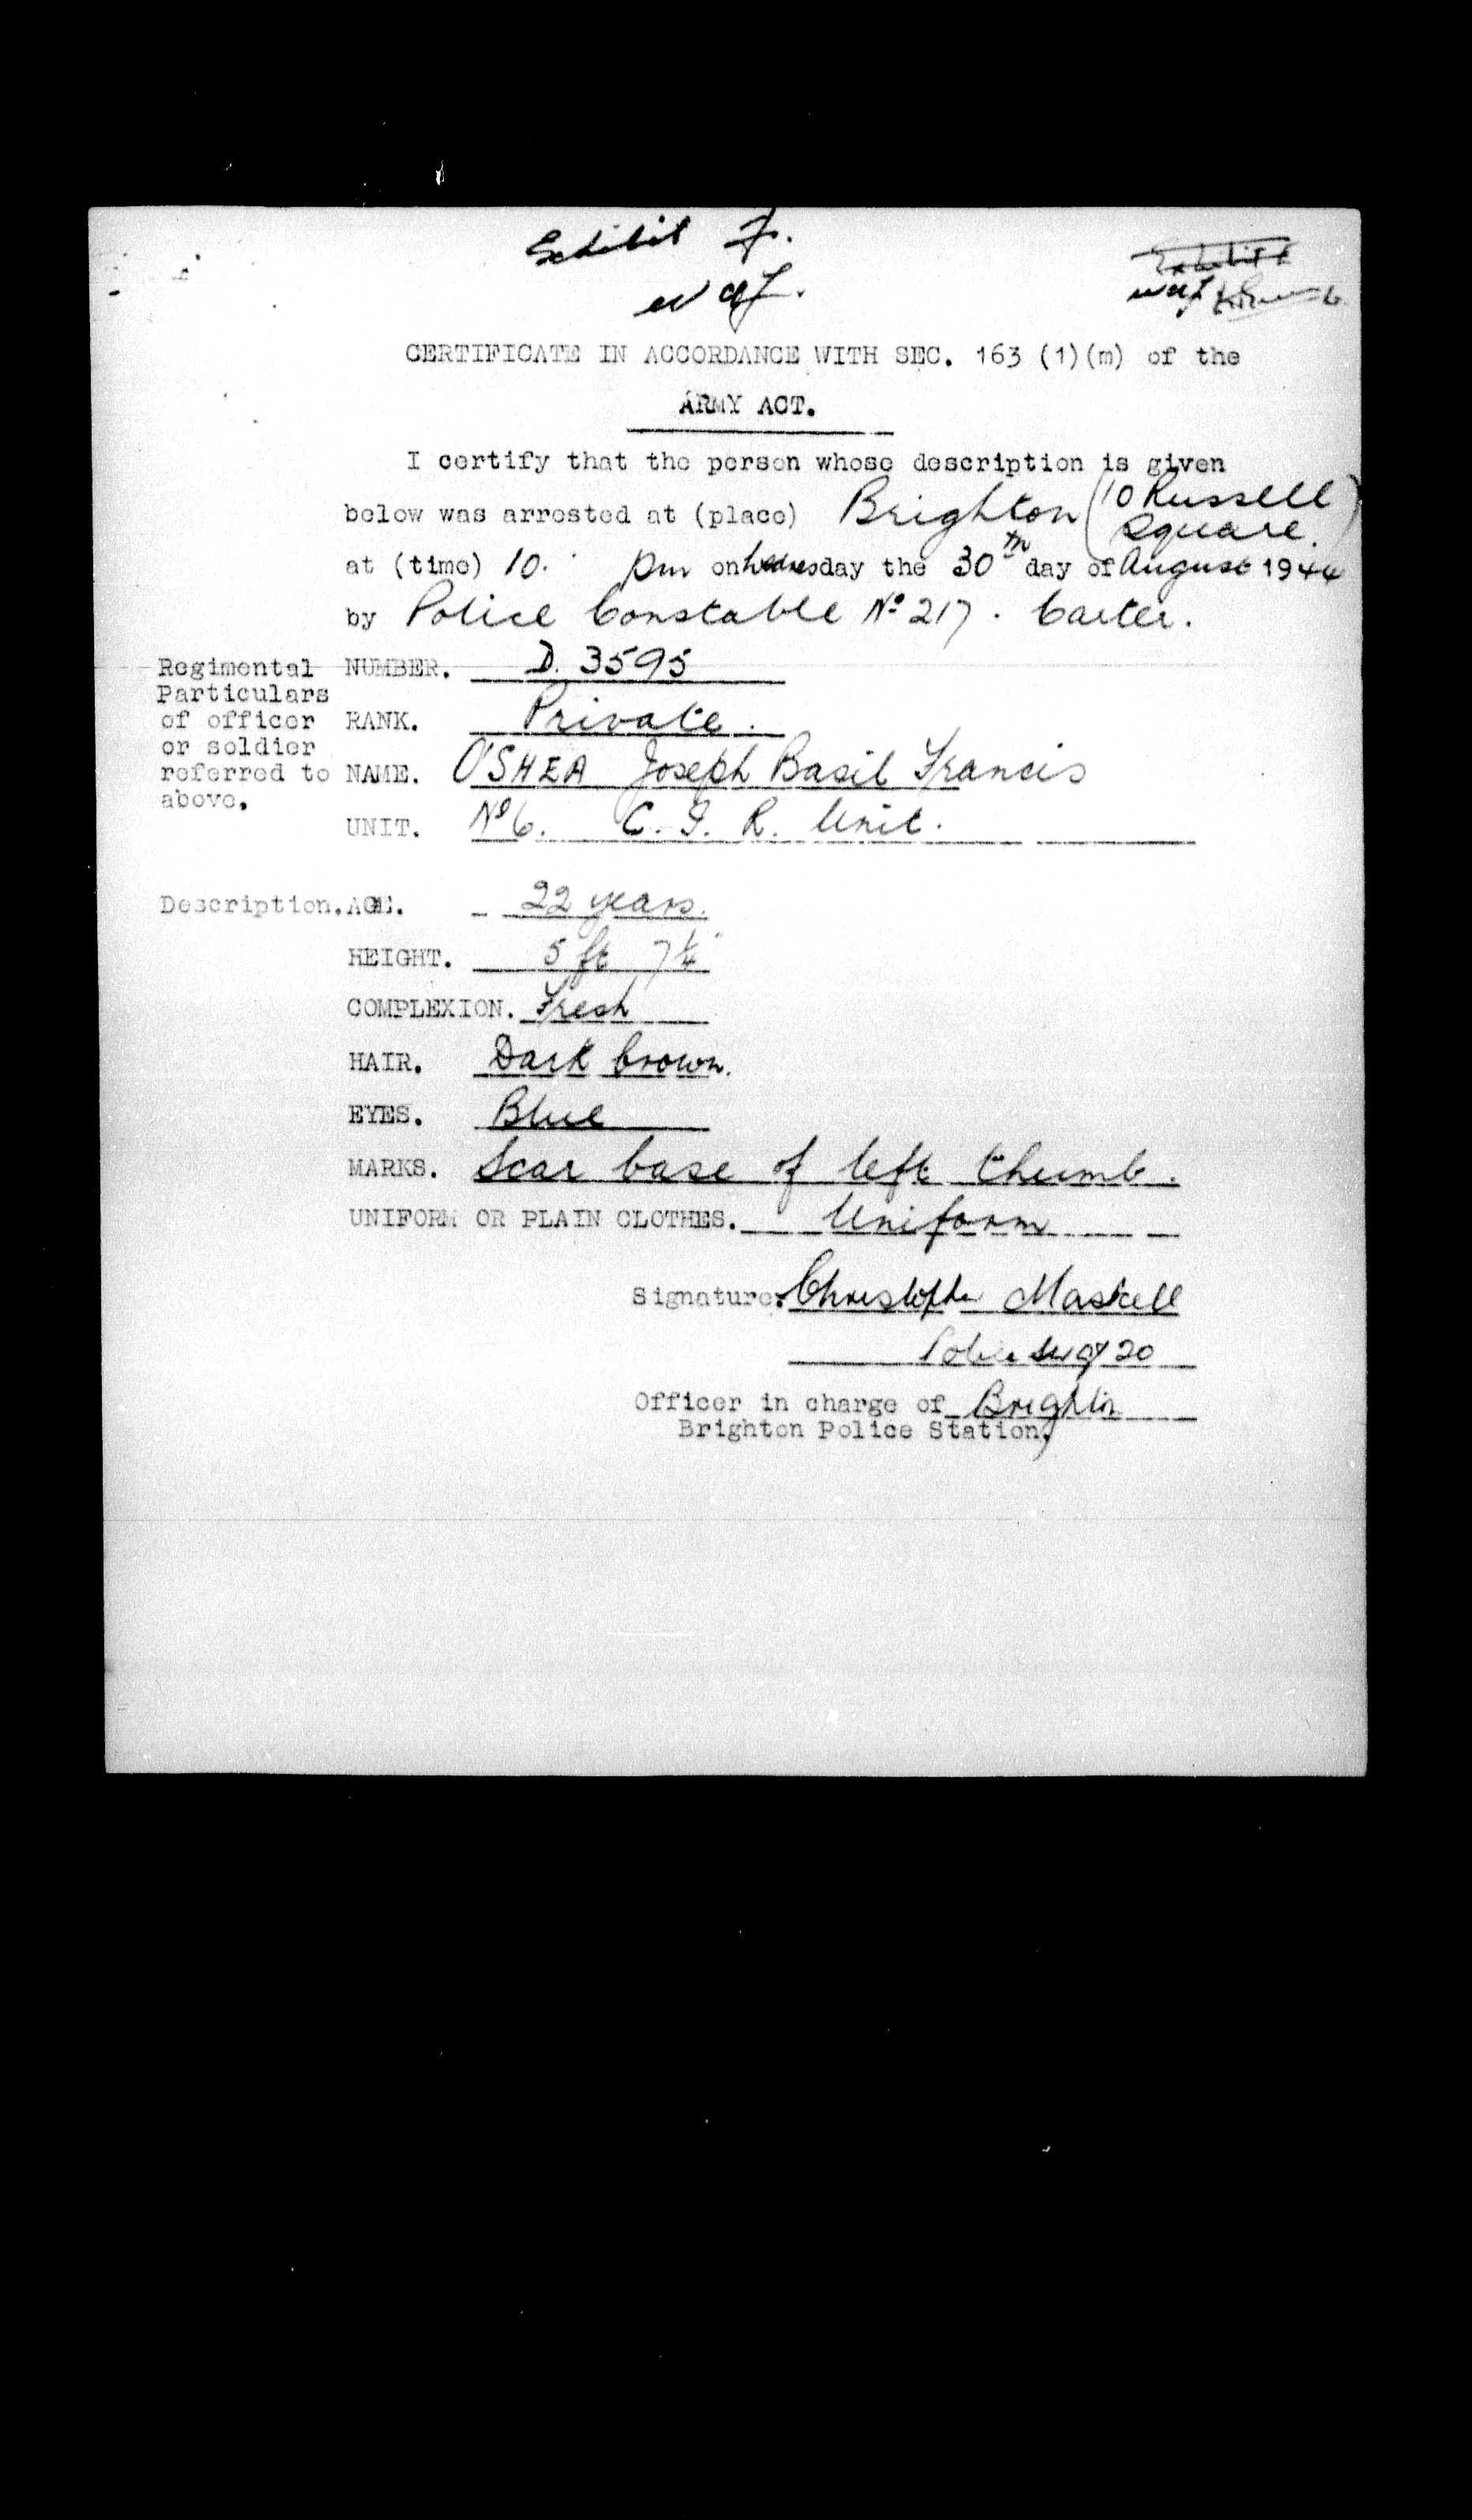 Exhibit F.
CERTIFICATE IN ACCORDANCE WITH SEC. 163 (1)(m) of the
ARMY ACT.
I certify that the person whose description is given
below was arrested at (place) Brighton (10 Russell Square.)
at (time) 10. pm on Wednesday the 30th day of August 1944
by Police Constable No 217. Carter.
Regimental Particulars of officer or soldier referred to above.
NUMBER. D. 3595
RANK. Private.
NAME. O'SHEA Joseph Basil Francis
UNIT. No 6. C. I. R. Unit.
Description. AGE. 22 years.
HEIGHT. 5 ft 7¼"
COMPLEXION. Fresh
HAIR. Dark brown.
EYES. Blue
MARKS. Scar base of left thumb.
UNIFORM OR PLAIN CLOTHES. Uniform
Signature. Christopher Maskell
Police 20
Officer in charge of Brighton
Brighton Police Station,